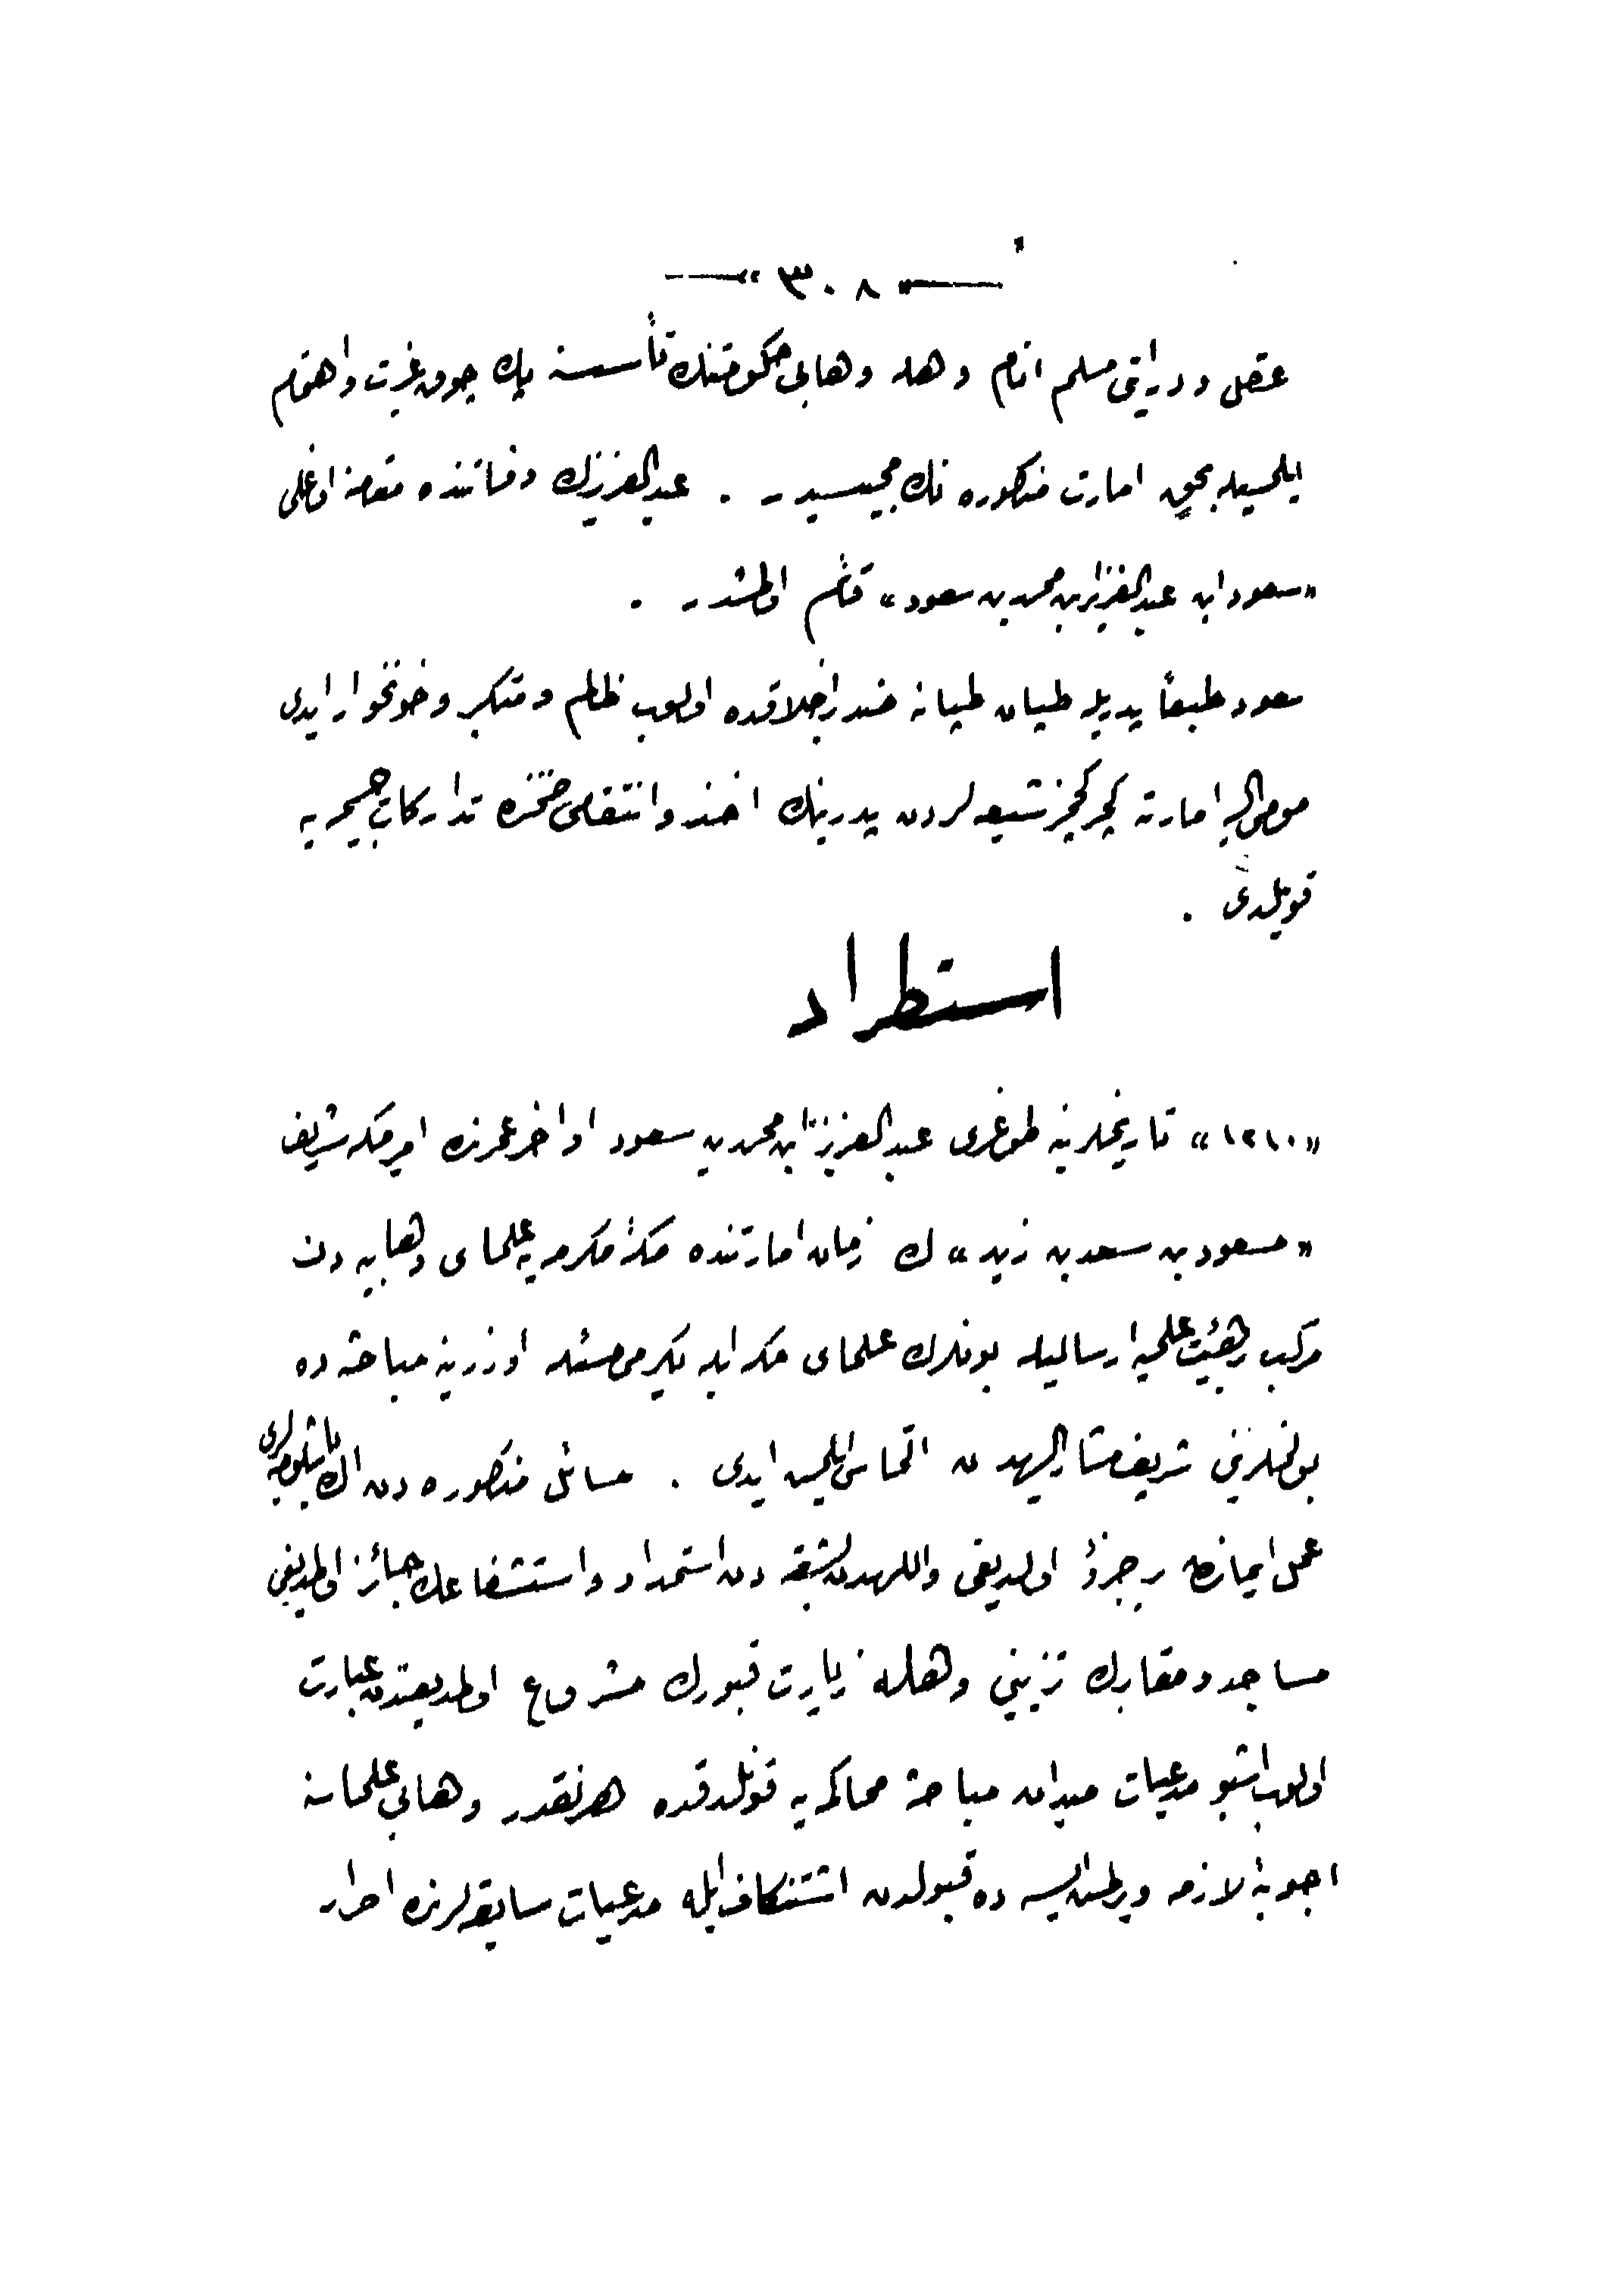 — « ٣٠٨ » —
عقل و درایتی مسلم انام وهله وهابی حکومتنك تأسسنه پك چوق غیرت واهتمام
ایلمسیله بحق امارت مذکوره نك مجیسیدر . عبدالعزیزك وفاتنده مقامنه اوغلی
«سعود ابن عبدالعزیز ابن محمد بن سعود» قائم اولمشدر .
سعود طبعاً پدریله طبان طبانه ضد براخلاقده اولوب ظالم ومتکبر وخونخوار ایدی
مومی الیه امارته کچر کچمز شیعه لردن پدرینك اخذ وانتقامی ضمننده تدارکات جسیمه یه
قویلدی .
استطراد
«١٢١٠» تاریخلرینه طوغری عبدالعزیز ابن محمد بن سعود اواخر عمرنده امیر مکه شریف
«مسعود بن سعد بن زید» ك زمان امارتنده مکۀ مکرمه یه علمای وهابیه دن
مرکب بر هیئت علمیه ارسالیله بونلرك علمای مکه ایله یکرمی مسئله اوزرینه مباحثه ده
بولنملرینی شریف مشار الیهدن التماس ایلمش ایدی . مسائل مذکوره دن اك باشلوجه لری
عمل ایماندن بر جزؤ اولدیغی واللهدن بشقه دن استمداد واستشفاعك جائز اولمدیغی
مساجد و مقابرك تزیینی وهله زیارت قبورك مشروع اولمدیغندن عبارت
اولوب اشبو مدعیات میدان مباحثه محاکمه یه قونلدقده هرنقدر وهابی علماسنه
اجوبۀ لازمه ویرلمش ایسه ده قبولدن استنکاف ایله مدعیات سابقه لرنده اصرار